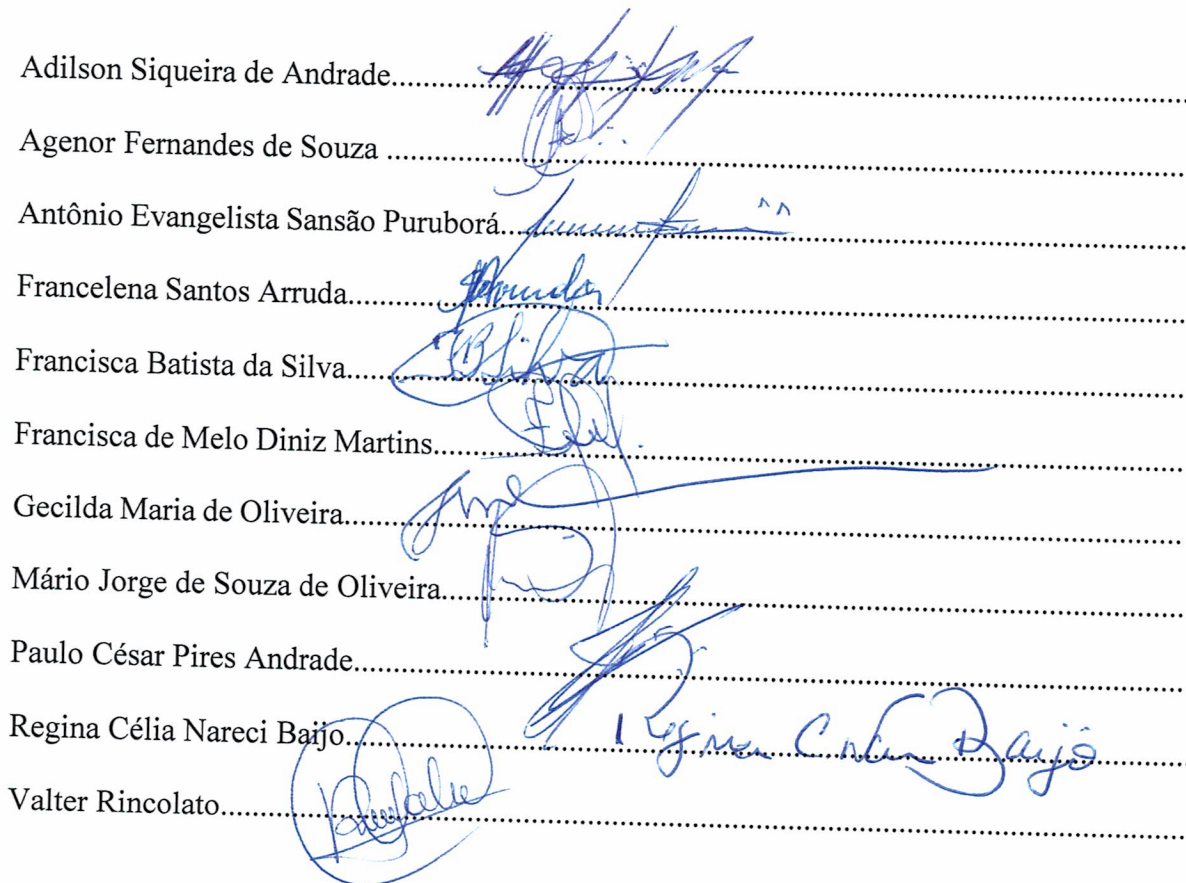 Adilson Siqueira de Andrade
Agenor Fernandes de Souza
Antônio Evangelista Sansão Puruborá
Francelena Santos Arruda
Francisca Batista da Silva
FBSilva
Francisca de Melo Diniz Martins
Gecilda Maria de Oliveira
Mário Jorge de Souza de Oliveira
Paulo César Pires Andrade
Regina Célia Nareci Baijo
Regina C Baijo
Valter Rincolato